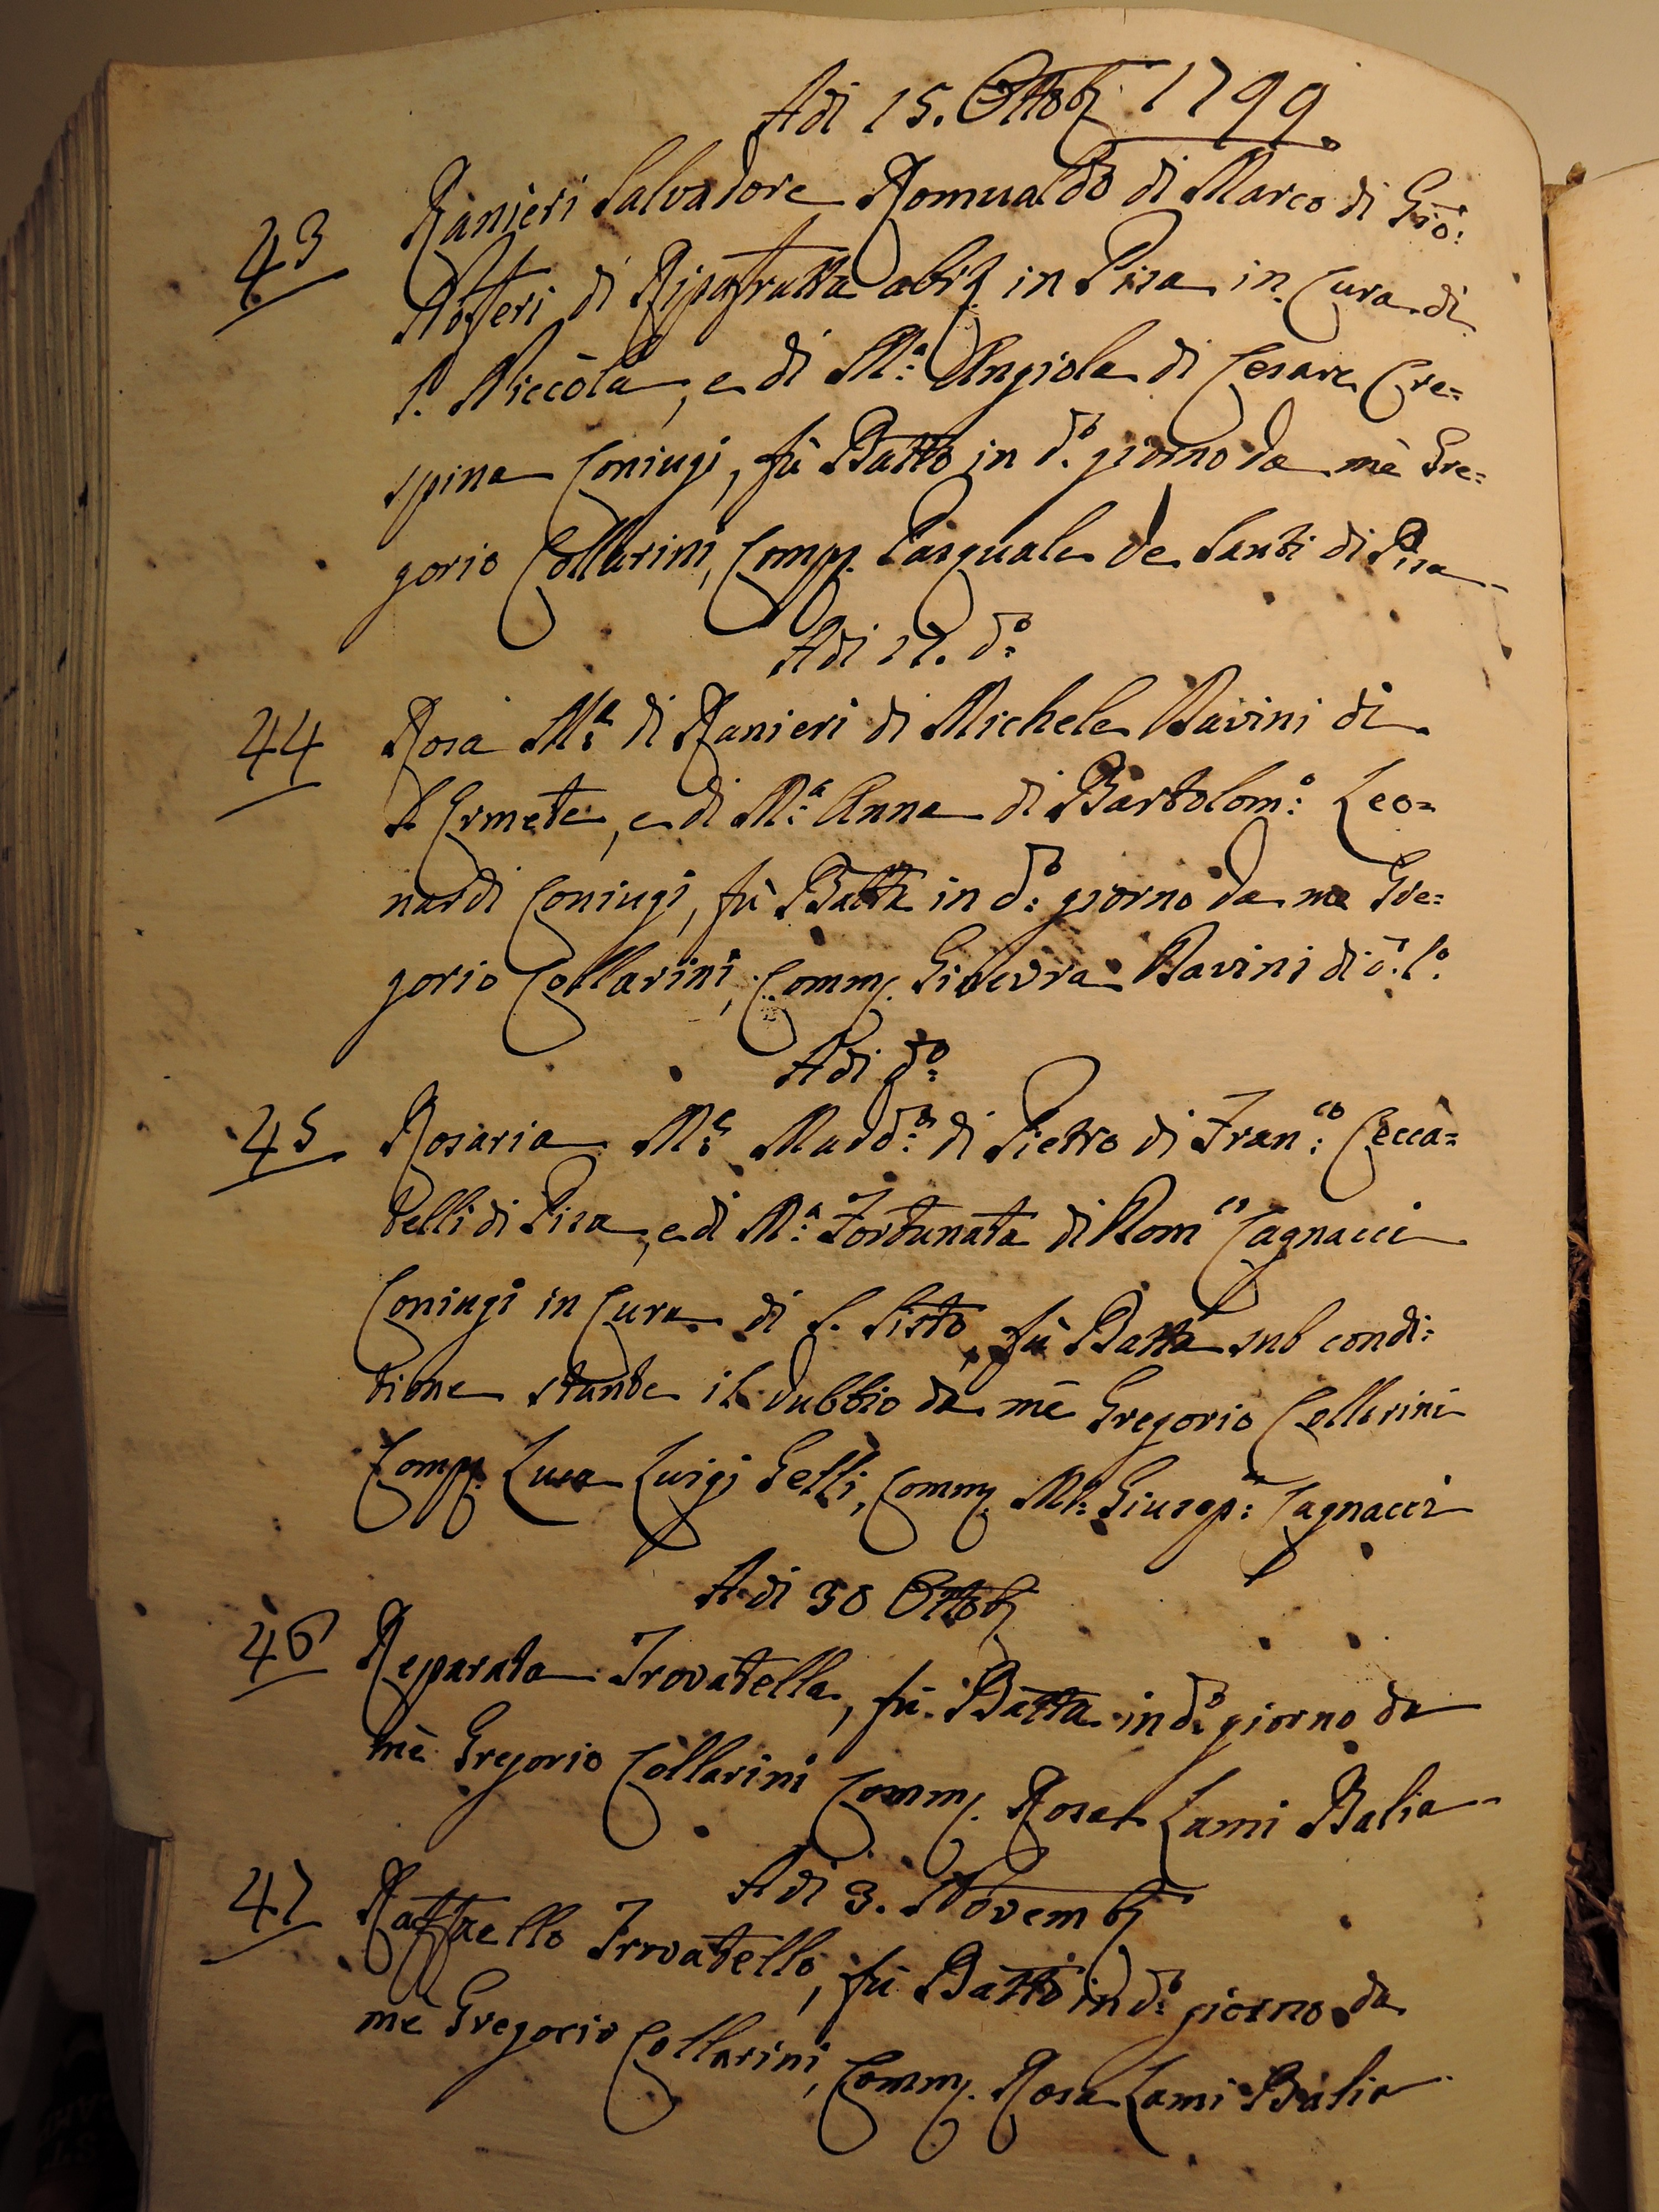 Adi 15. Ottob. 1799.
43 Ranieri Salvadore Romualdo di Marco di Gio:
Rosseri di Ripafratta abit. in Pisa in Cura di
S. Niccola, e di Mª: Angiola di Cesare Cre=
spina Coniugi, fù Batto in dº. giorno da mè Gre=
gorio Collarini, Comp. Pasquale de Santi di Pisa
Adi 17. dº=
44 Rosa Mª: di Ranieri di Michele Bavini di
S Ermete, e di Mª: Anna di Bartolomº: Leo=
nardi Coniugi, fù Batta in dº: giorno da me Gre=
gorio Collarini, Comm. Ginevra Bavini di
Adi dº=
45 Rosaria Mª: Maddª: di Pietro di Franco: Cecca=
telli di Pisa, e di Mª: Fortunata di Domco Cagnacci
Coniugi in Cura di S. Sisto, fù Batta sub condi=
tione stante il dubbio da mè Gregorio Collarini
Comp. Luca Luigi Gelli, Comm. Mª: Giusep: Cagnacci
Adi 30 Ottob.
46 Reparata Trovatella, fù Batta in dº: giorno da
mè Gregorio Collarini Comm. Rosa Lami Balia
Adi 3. Novemb.
47 Raffaello Trovatello, fù Batto in dº: giorno da
mè Gregorio Collarini, Comm. Rosa Lami Balia